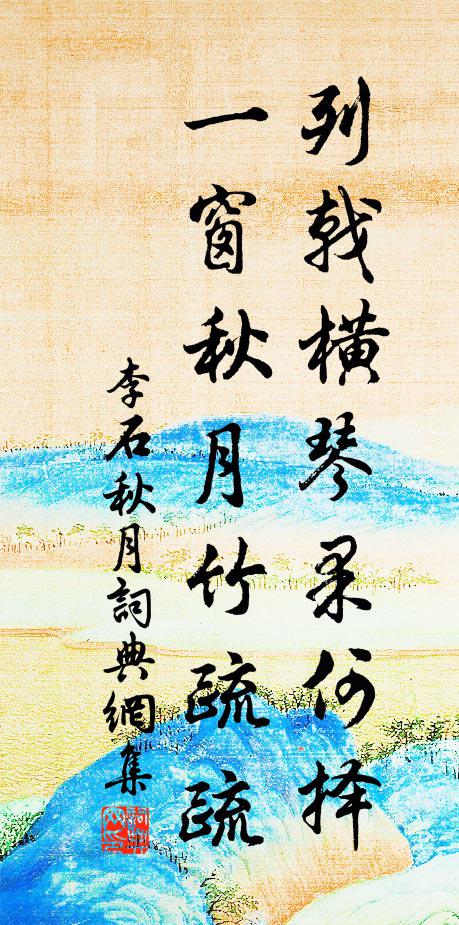 列戟橫琴果何择
一窗秋月竹疏疏
李石秋月詞典網集